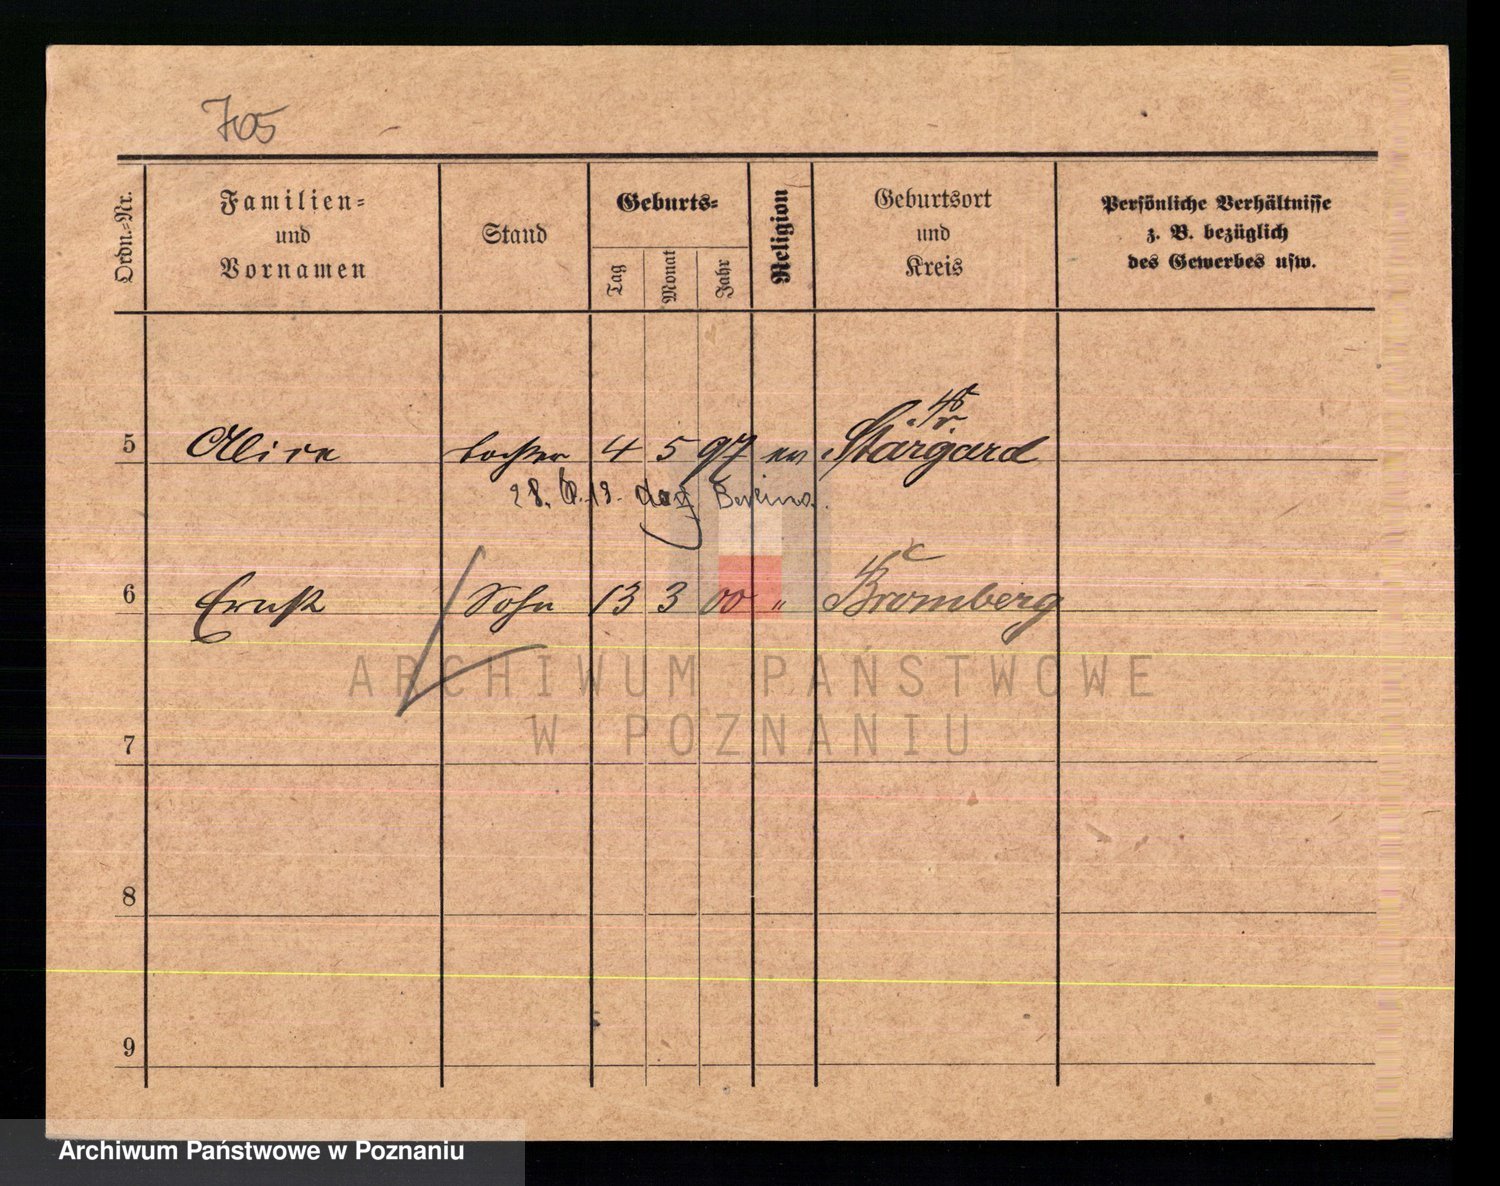 705
Ordn.-Nr.
Familien-
und
Vornamen
Stand
Geburts-
Tag
Monat
Jahr
Religion
Geburtsort
und
Kreis
Persönliche Verhältnisse
z. B. bezüglich
des Gewerbes usw.
5 Tochter 4 5 97 ev Stargard
28. 13.
6 Ernst Sohn 13 3 00 " Bromberg
7
8
9
ARCHIWUM PAŃSTWOWE
W POZNANIU
Archiwum Państwowe w Poznaniu